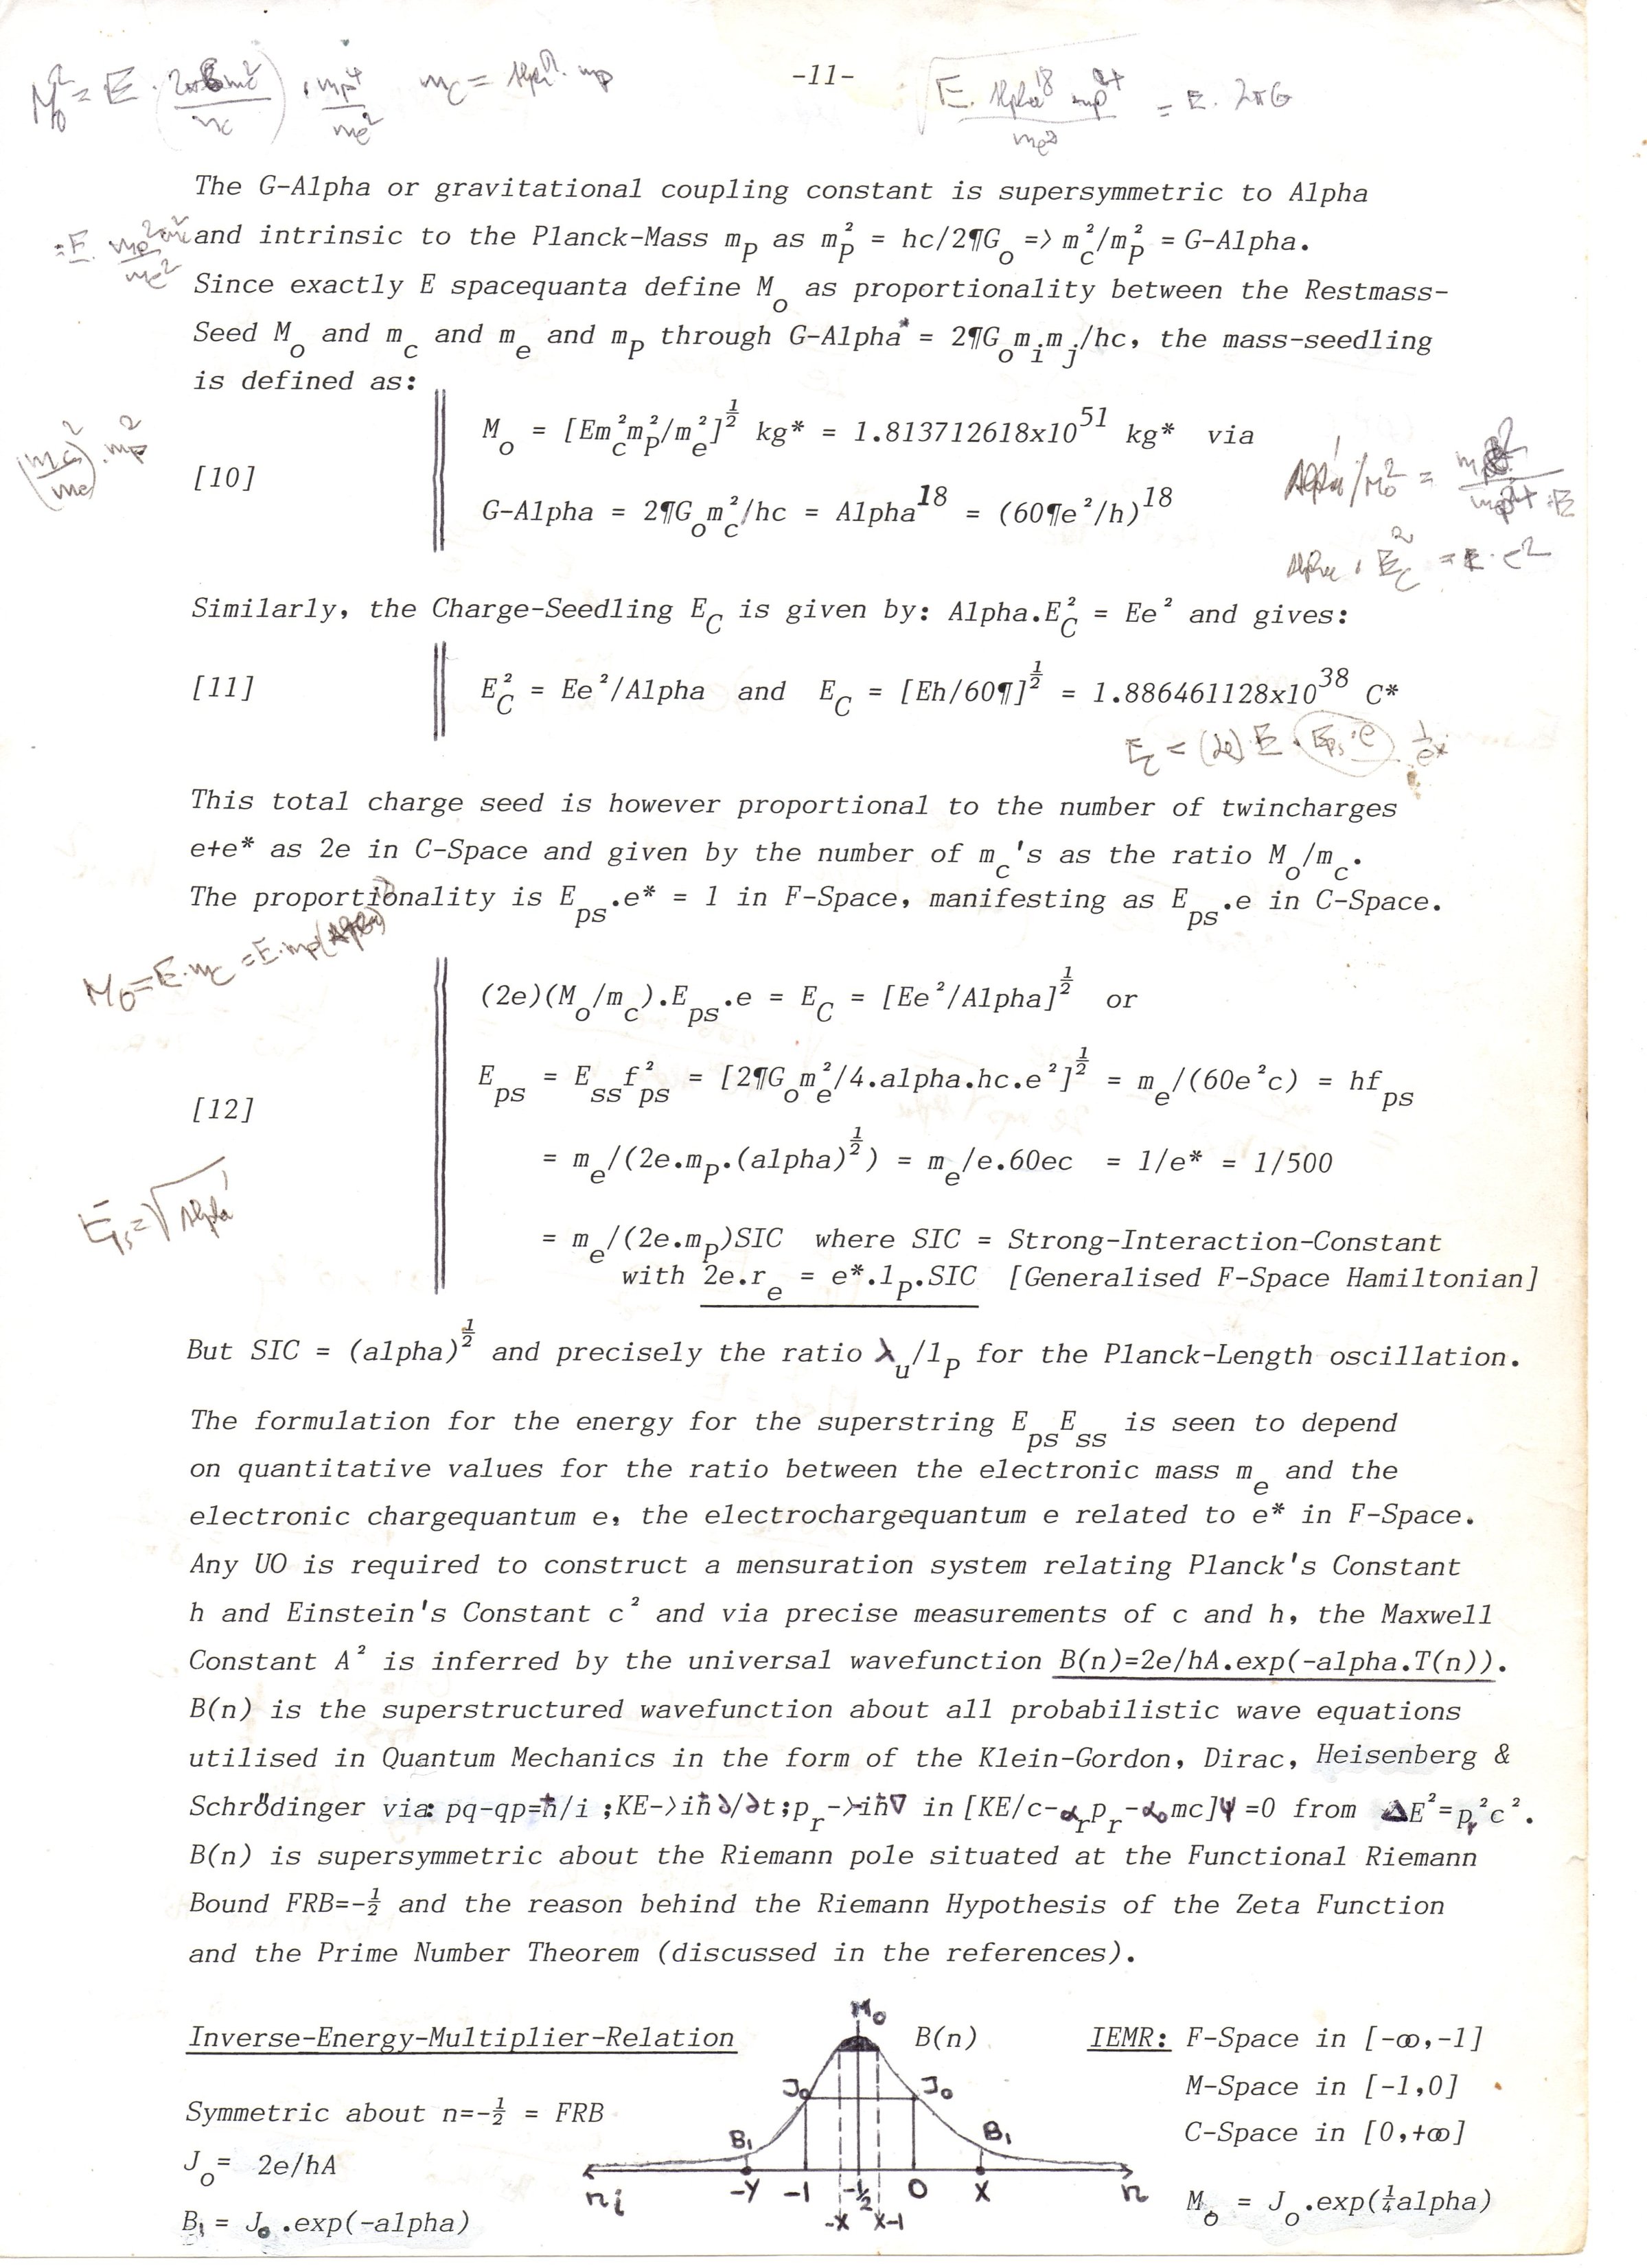 -11-
The G-Alpha or gravitational coupling constant is supersymmetric to Alpha
and intrinsic to the Planck-Mass m_P as m_P² = hc/2¶G_o => m_c²/m_P² = G-Alpha.
Since exactly E spacequanta define M_o as proportionality between the Restmass-
Seed M_o and m_c and m_e and m_P through G-Alpha* = 2¶G_o m_i m_j/hc, the mass-seedling
is defined as:
M_o = [Em_c²m_P²/m_e²]^½ kg* = 1.813712618x10^51 kg* via
[10]
G-Alpha = 2¶G_o m_c²/hc = Alpha^18 = (60¶e²/h)^18
Similarly, the Charge-Seedling E_C is given by: Alpha.E_C² = Ee² and gives:
[11] E_C² = Ee²/Alpha and E_C = [Eh/60¶]^½ = 1.886461128x10^38 C*
This total charge seed is however proportional to the number of twincharges
e+e* as 2e in C-Space and given by the number of m_c's as the ratio M_o/m_c.
The proportionality is E_ps.e* = 1 in F-Space, manifesting as E_ps.e in C-Space.
M_o = E.m_c = E.m_p
(2e)(M_o/m_c).E_ps.e = E_C = [Ee²/Alpha]^½ or
E_ps = E_ss f_ps² = [2¶G_o m_e²/4.alpha.hc.e²]^½ = m_e/(60e²c) = hf_ps
[12]
= m_e/(2e.m_P.(alpha)^½) = m_e/e.60ec = 1/e* = 1/500
E_ps = √Alpha
= m_e/(2e.m_P)SIC where SIC = Strong-Interaction-Constant
with 2e.r_e = e*.l_P.SIC [Generalised F-Space Hamiltonian]
But SIC = (alpha)^½ and precisely the ratio λ_u/l_P for the Planck-Length oscillation.
The formulation for the energy for the superstring E_ps E_ss is seen to depend
on quantitative values for the ratio between the electronic mass m_e and the
electronic chargequantum e, the electrochargequantum e related to e* in F-Space.
Any UO is required to construct a mensuration system relating Planck's Constant
h and Einstein's Constant c² and via precise measurements of c and h, the Maxwell
Constant A² is inferred by the universal wavefunction B(n)=2e/hA.exp(-alpha.T(n)).
B(n) is the superstructured wavefunction about all probabilistic wave equations
utilised in Quantum Mechanics in the form of the Klein-Gordon, Dirac, Heisenberg &
Schrödinger via: pq-qp=ħ/i ;KE->iħ∂/∂t;p_r->-iħ∇ in [KE/c-α_r p_r-α_o mc]ψ=0 from ΔE²=p_r²c².
B(n) is supersymmetric about the Riemann pole situated at the Functional Riemann
Bound FRB=-½ and the reason behind the Riemann Hypothesis of the Zeta Function
and the Prime Number Theorem (discussed in the references).
Inverse-Energy-Multiplier-Relation
Symmetric about n=-½ = FRB
J_o= 2e/hA
B₁ = J_o.exp(-alpha)
M_o
B(n)
J_o J_o
B₁ B₁
n_i -Y -1 -½ 0 X n
-X X-1
IEMR: F-Space in [-∞,-1]
M-Space in [-1,0]
C-Space in [0,+∞]
M_o = J_o.exp(¼alpha)